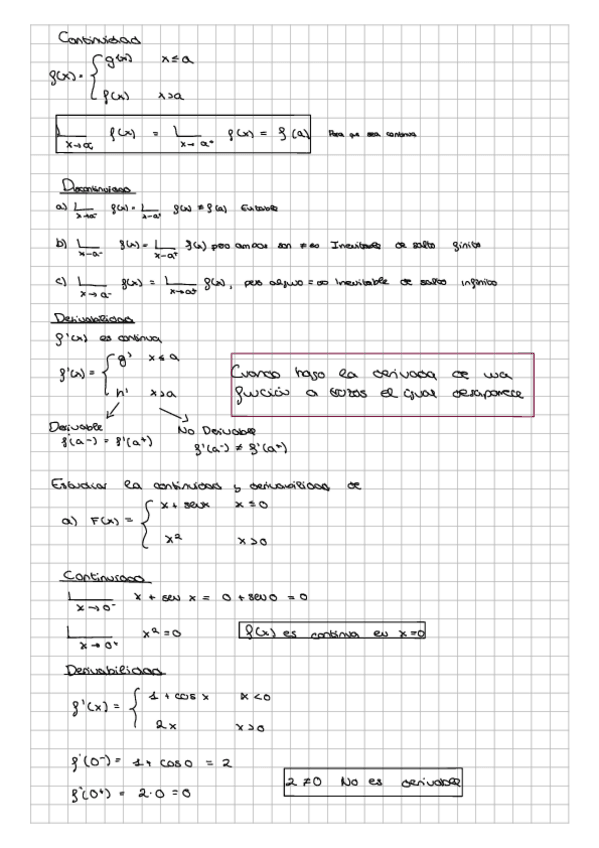 Continuidad
f(x) = { g(x) x ≤ a
f(x) x > a
Lim x→a⁻ f(x) = Lim x→a⁺ f(x) = f(a) Para que sea continua
Discontinuidad
a) Lim x→a⁻ f(x) = Lim x→a⁺ f(x) ≠ f(a) Evitable
b) Lim x→a⁻ f(x) = Lim x→a⁺ f(x) pero ambos son ≠ ∞ Inevitable de salto finito
c) Lim x→a⁻ f(x) = Lim x→a⁺ f(x), pero alguno = ∞ Inevitable de salto infinito
Derivabilidad
f'(x) es continua
f'(x) = { g' x ≤ a
h' x > a
Cuando hago la derivada de una
función a trozos el igual desaparece
Derivable
f'(a⁻) = f'(a⁺)
No Derivable
f'(a⁻) ≠ f'(a⁺)
Estudiar la continuidad y derivabilidad de
a) F(x) = { x + senx x ≤ 0
x² x > 0
Continuidad
Lim x→0⁻ x + sen x = 0 + sen0 = 0
Lim x→0⁺ x² = 0 f(x) es continua en x=0
Derivabilidad
f'(x) = { 1 + cos x x < 0
2x x > 0
f'(0⁻) = 1 + cos0 = 2
f'(0⁺) = 2·0 = 0
2 ≠ 0 No es derivable